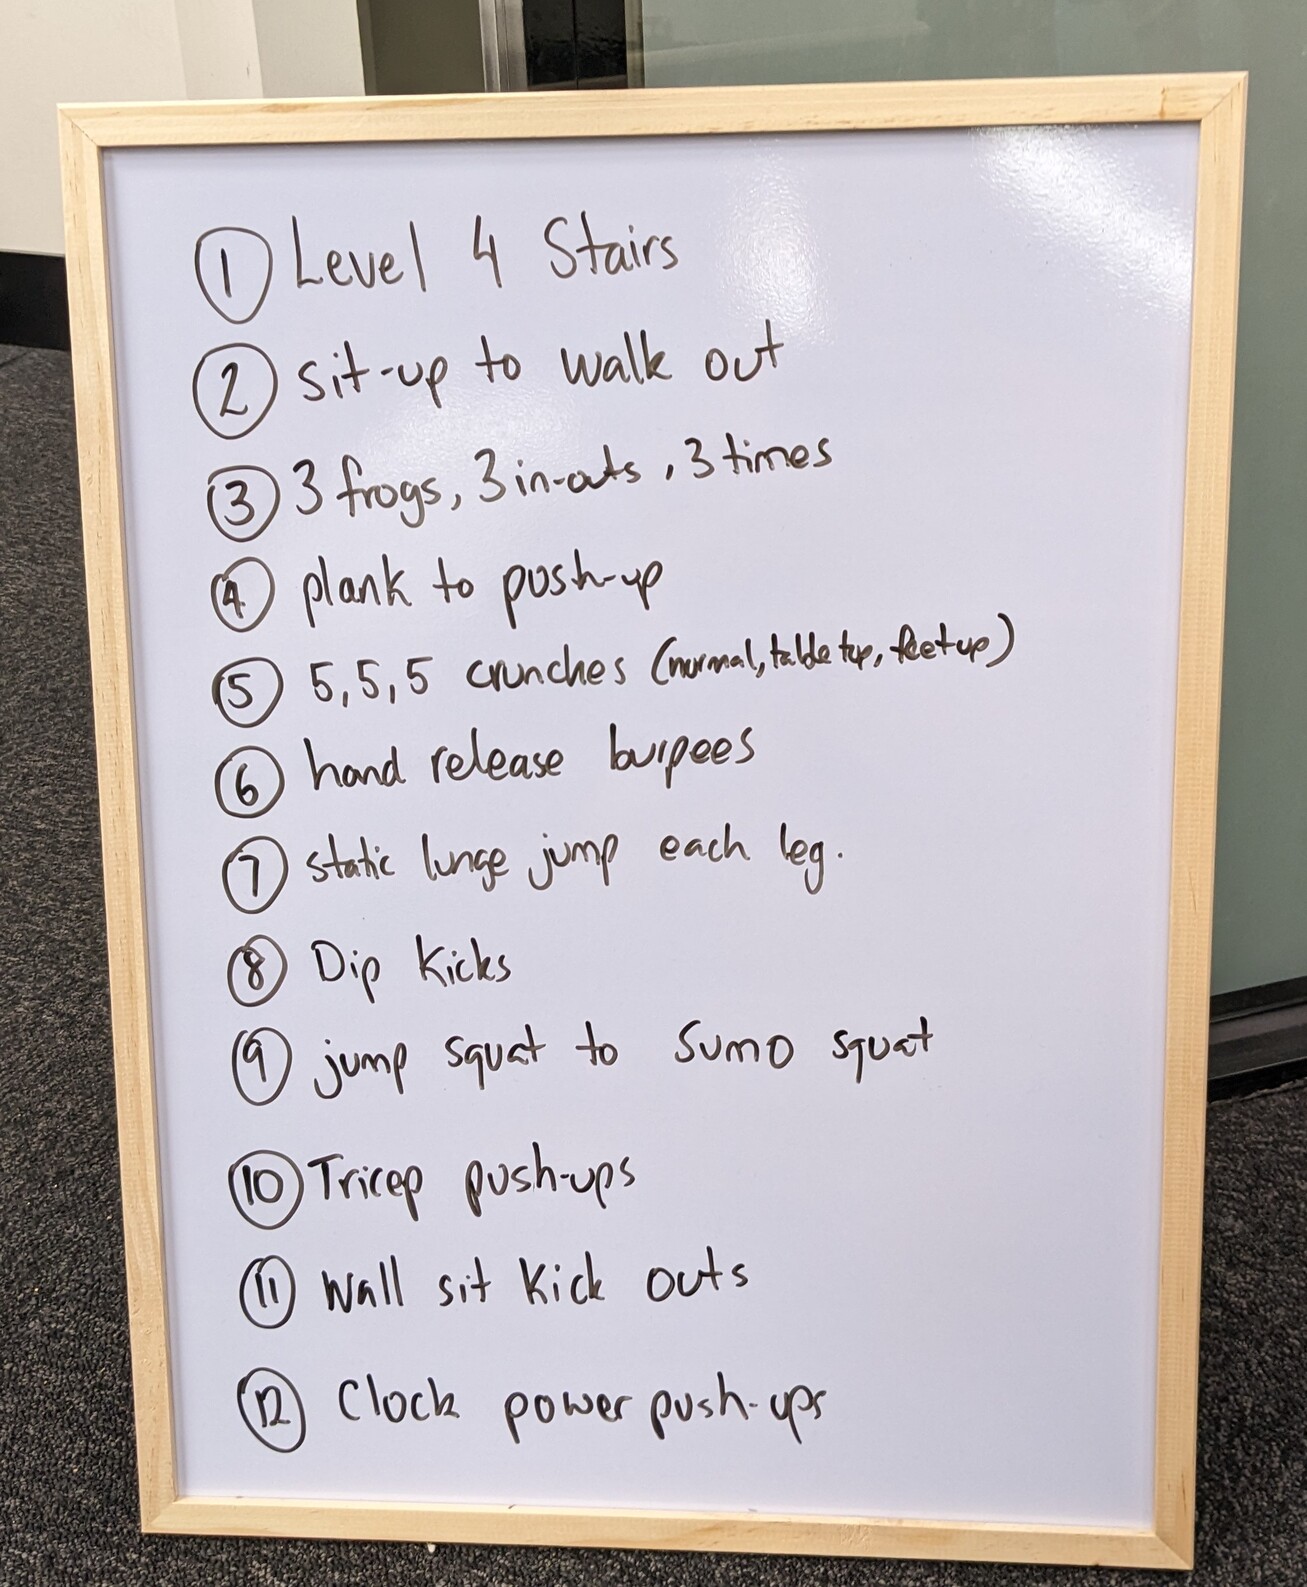 1 Level 4 Stairs
2 sit-up to walk out
3 3 frogs, 3 in-outs, 3 times
4 plank to push-up
5 5,5,5 crunches (normal, table top, feet up)
6 hand release burpees
7 static lunge jump each leg.
8 Dip Kicks
9 jump squat to Sumo squat
10 Tricep push-ups
11 Wall sit Kick outs
12 Clock power push-ups